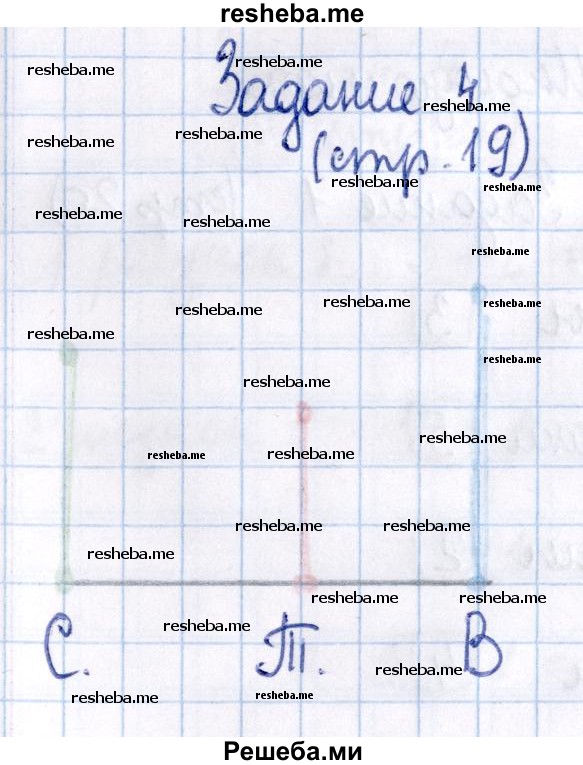 resheba.me
resheba.me
resheba.me
Задание 4
resheba.me
resheba.me
resheba.me
(стр. 19)
resheba.me
resheba.me
resheba.me
resheba.me
resheba.me
resheba.me
resheba.me
resheba.me
resheba.me
resheba.me
resheba.me
resheba.me
resheba.me
resheba.me
resheba.me
resheba.me
resheba.me
resheba.me
resheba.me
resheba.me
С. Т. В
resheba.me
resheba.me
resheba.me
resheba.me
Решеба.ми